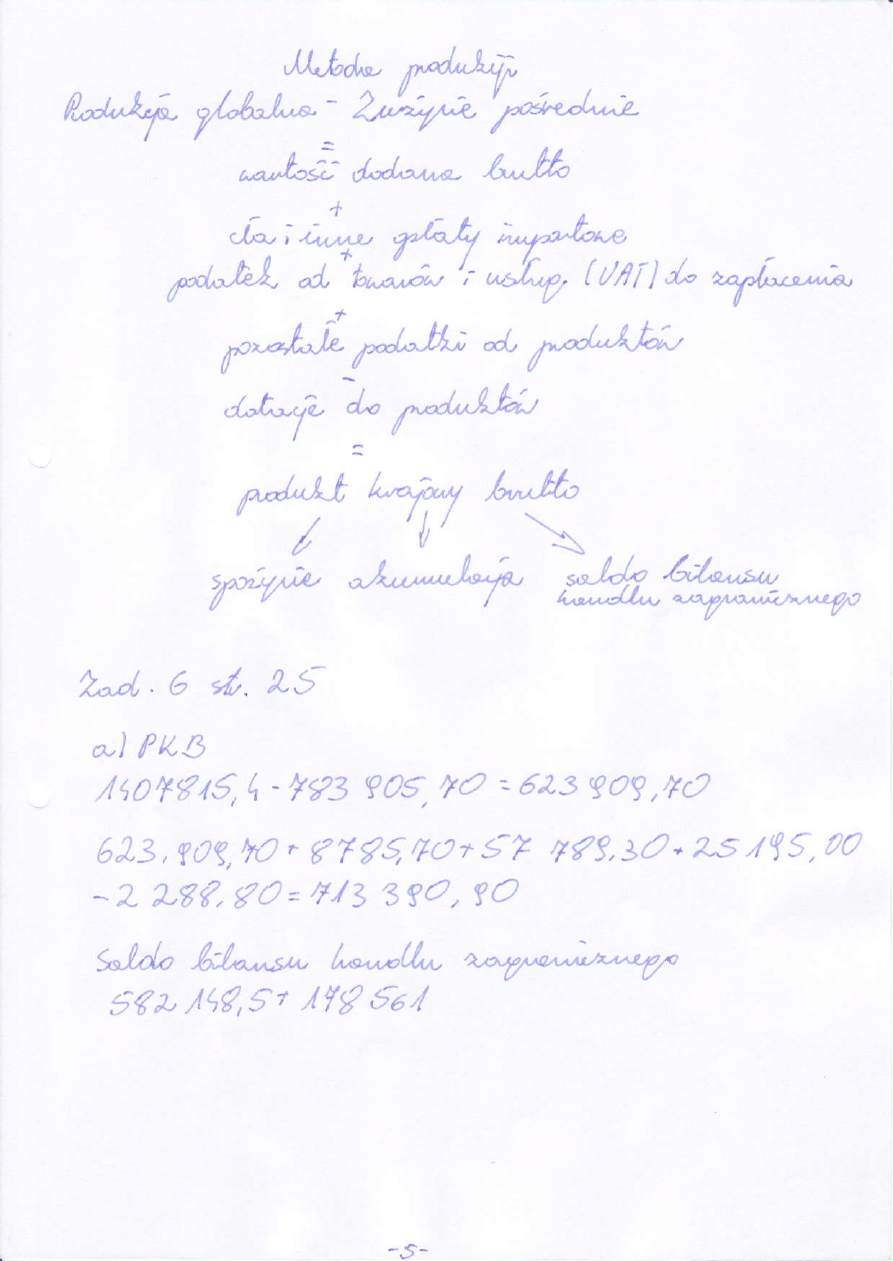 Metoda produkcji
Produkcja globalna - Zużycie pośrednie
=
wartość dodana brutto
+
cła i inne opłaty importowe
+
podatek od towarów i usług. (VAT) do zapłacenia
+
pozostałe podatki od produktów
-
dotacje do produktów
=
produkt krajowy brutto
↙ ↓ ↘
spożycie akumulacja saldo bilansu
handlu zagranicznego
Zad. 6 st. 25
a) PKB
1407815,4 - 783 905,70 = 623 909,70
623.909,70 + 8785,70 + 57 789,30 + 25 195,00
- 2 288,80 = 713 390,90
Saldo bilansu handlu zagranicznego
582 148,5 + 178 561
-5-